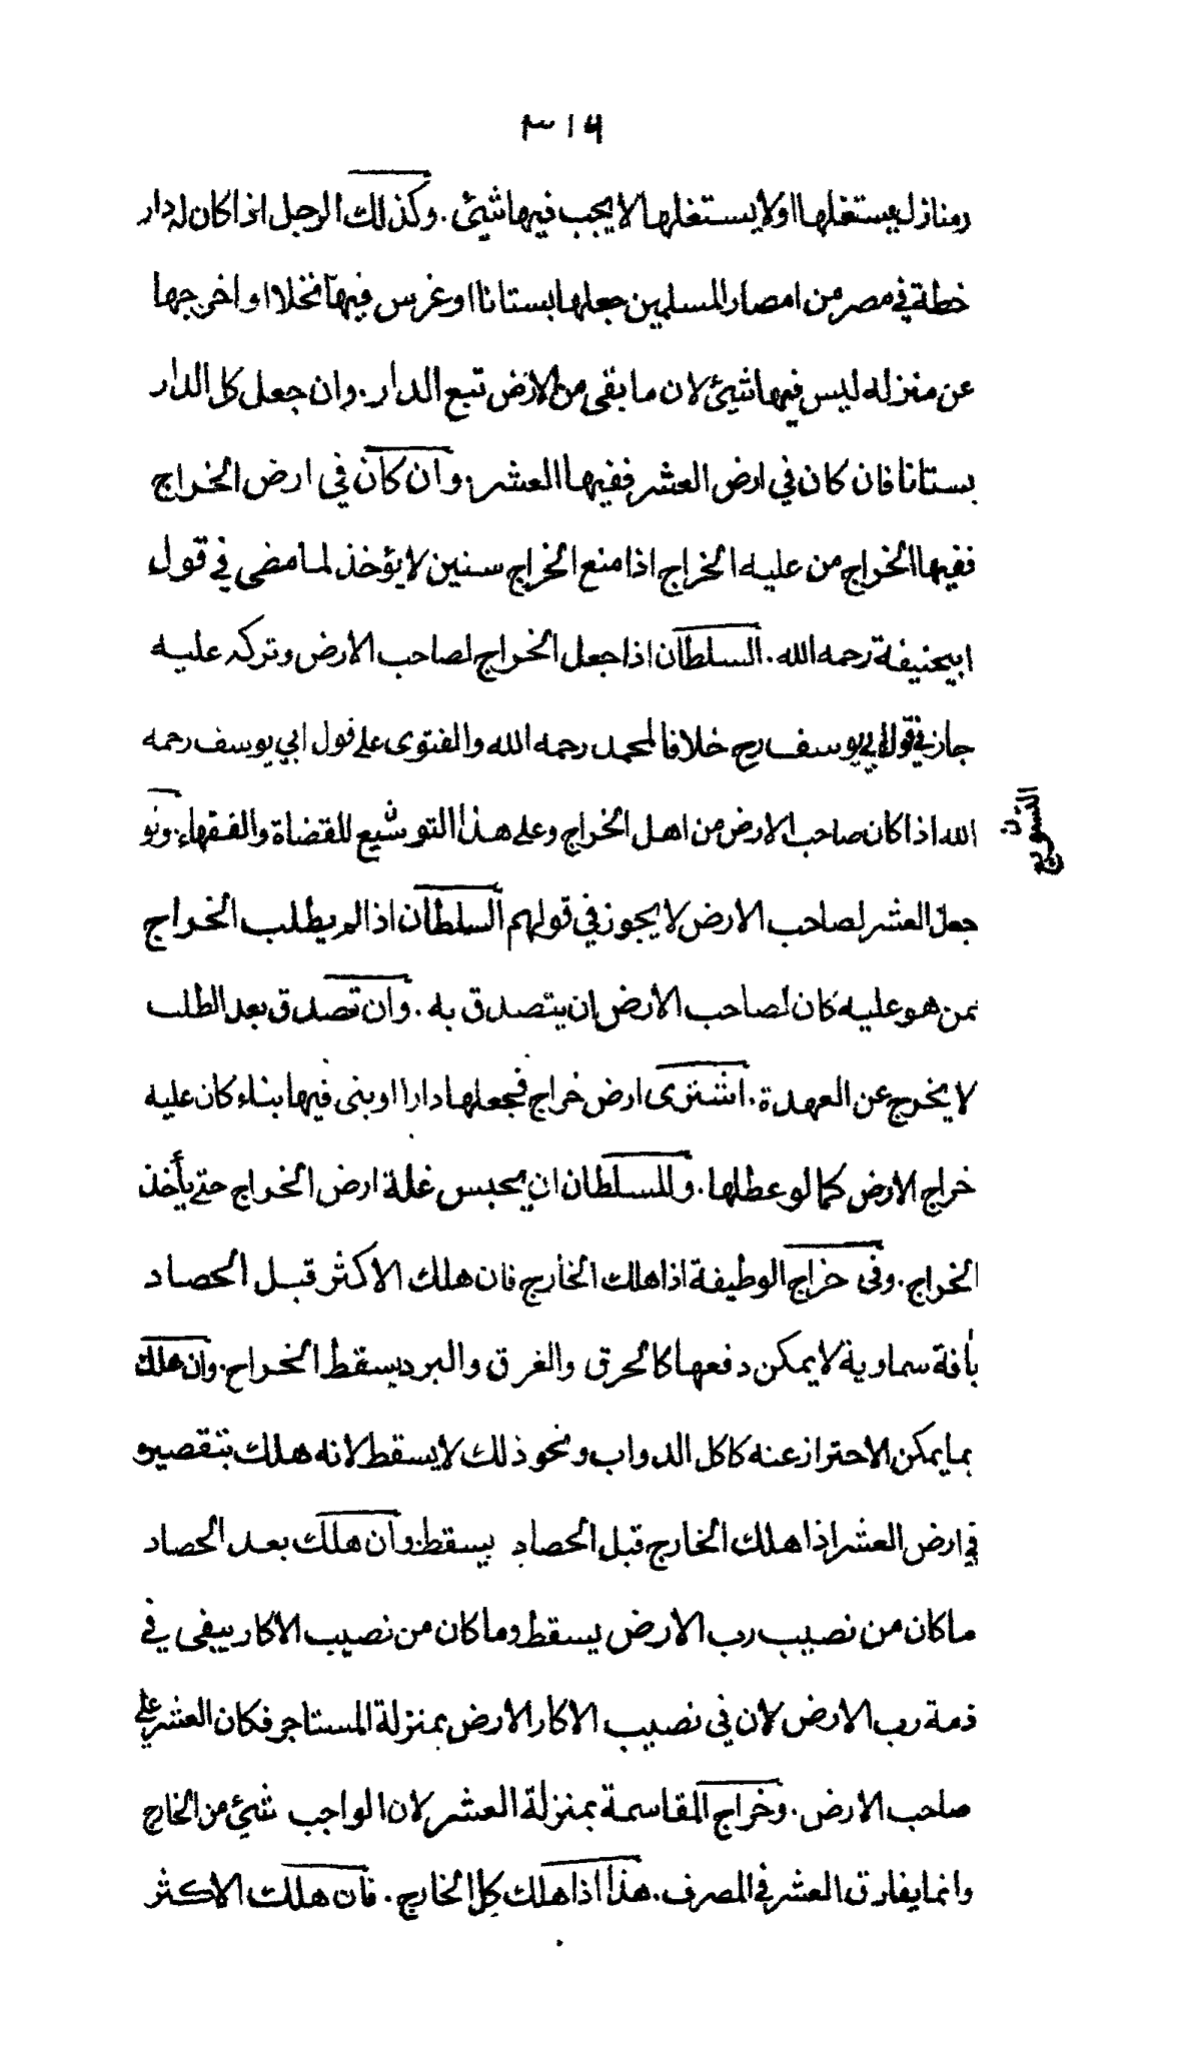 ٣١٦
ومنازل يستغلها او لا يستغلها لا يجب فيها شيئ . وكذلك الرجل اذا كان له دار
خطة في مصر من امصار المسلمين جعلها بستانا او غرس فيها نخلا او اخرجها
عن منزله ليس فيها شيئ لان ما بقى من الارض تبع الدار . وان جعل كل الدار
بستانا فان كان في ارض العشر ففيها العشر . وان كان في ارض الخراج
ففيها الخراج من عليه الخراج اذا منع الخراج سنين لا يؤخذ لما مضى في قول
ابيحنيفة رحمه الله . السلطان اذا جعل الخراج لصاحب الارض وتركه عليه
جاز في قول ابي يوسف رح خلافا لمحمد رحمه الله والفتوى على قول ابي يوسف رحمه
الله اذا كان صاحب الارض من اهل الخراج وعلى هذا التوشيع للقضاة والفقهاء . ولو
التسويغ
ن
جعل العشر لصاحب الارض لا يجوز في قولهم السلطان اذا لم يطلب الخراج
ممن هو عليه كان لصاحب الأرض ان يتصدق به . وان تصدق بعد الطلب
لا يخرج عن العهدة . اشترى ارض خراج فجعلها دارا او بنى فيها بناء كان عليه
خراج الارض كما لو عطلها . وللسلطان ان يحبس غلة ارض الخراج حتى يأخذ
الخراج . وفى خراج الوظيفة اذا هلك الخارج فان هلك الاكثر قبل الحصاد
بأفة سماوية لا يمكن دفعها كالحرق والغرق والبرد يسقط الخراج . وان هلك
بما يمكن الاحتراز عنه كاكل الدواب ونحو ذلك لا يسقط لانه هلك بتقصيره
في ارض العشر اذا هلك الخارج قبل الحصاد يسقط . وان هلك بعد الحصاد
ما كان من نصيب رب الارض يسقط وما كان من نصيب الاكار يبقى في
ذمة رب الارض لان في نصيب الاكار الارض بمنزلة المستاجر فكان العشر على
صاحب الارض . وخراج المقاسمة بمنزلة العشر لان الواجب شيئ من الخارج
وانما يفارق العشر في المصرف . هذا اذا هلك كل الخارج . فان هلك الاكثر